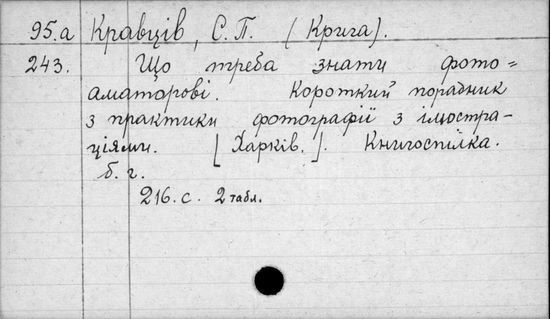 95.а Кравців, С. П. (Крига).
243. Що треба знати фото=
аматорові. Короткий порадник
з практики фотографії з ілюстра-
ціями. [Харків.]. Книгоспілка.
б. г.
216. с. 2 табл.